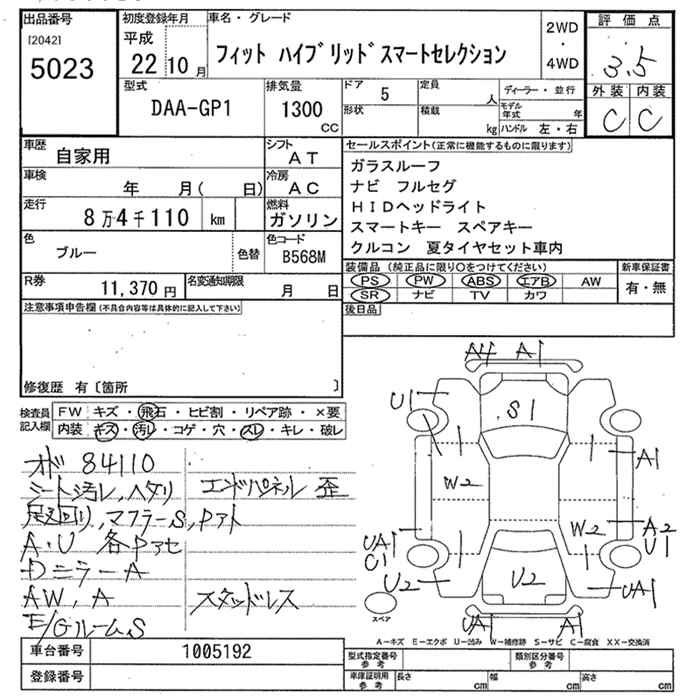 出品番号
[2042]
5023
初度登録年月
平成
22 10 月
車名・グレード
フィット ハイブリッドスマートセレクション
2WD
・
4WD
評価点
3.5
外装 内装
C C
型式
DAA-GP1
排気量
1300
cc
ドア 5
形状
定員
人
積載
kg
ディーラー・並行
モデル
年式 年
ハンドル 左・右
車歴
自家用
シフト
AT
車検
年 月( 日)
冷房
AC
走行
8万4千110 km
燃料
ガソリン
色
ブルー
色替
色コード
B568M
セールスポイント(正常に機能するものに限ります)
ガラスルーフ
ナビ フルセグ
HIDヘッドライト
スマートキー スペアキー
クルコン 夏タイヤセット車内
R券
11,370 円
名変通知期限
月 日
装備品(純正品に限り○をつけてください)
PS PW ABS エアB AW
SR ナビ TV カワ
新車保証書
有・無
後日品
注意事項申告欄(不具合内容等は具体的に記入して下さい)
修復歴 有〔箇所 〕
検査員
記入欄
FW キズ・飛石・ヒビ割・リペア跡・×要
内装 キズ・汚レ・コゲ・穴・スレ・キレ・破レ
オド 84110
シート汚レ、ヘタリ エンドパネル 歪
足廻回り、マフラーS、Pアト
A・U 各Pアセ
Dミラー A
AW、A スタッドレス
E/Gルーム、S
A4 A1
U1
S1
A1
W2
W2
A2
U1
UA1
C1
U2
U2
UA1
UA1 A1
スペア
A−キズ E−エクボ U−凹み W−補修跡 S−サビ C−腐食 XX−交換済
車台番号
1005192
登録番号
型式指定番号
参考
類別区分番号
参考
車庫証明用
参考
長さ cm
幅 cm
高さ cm